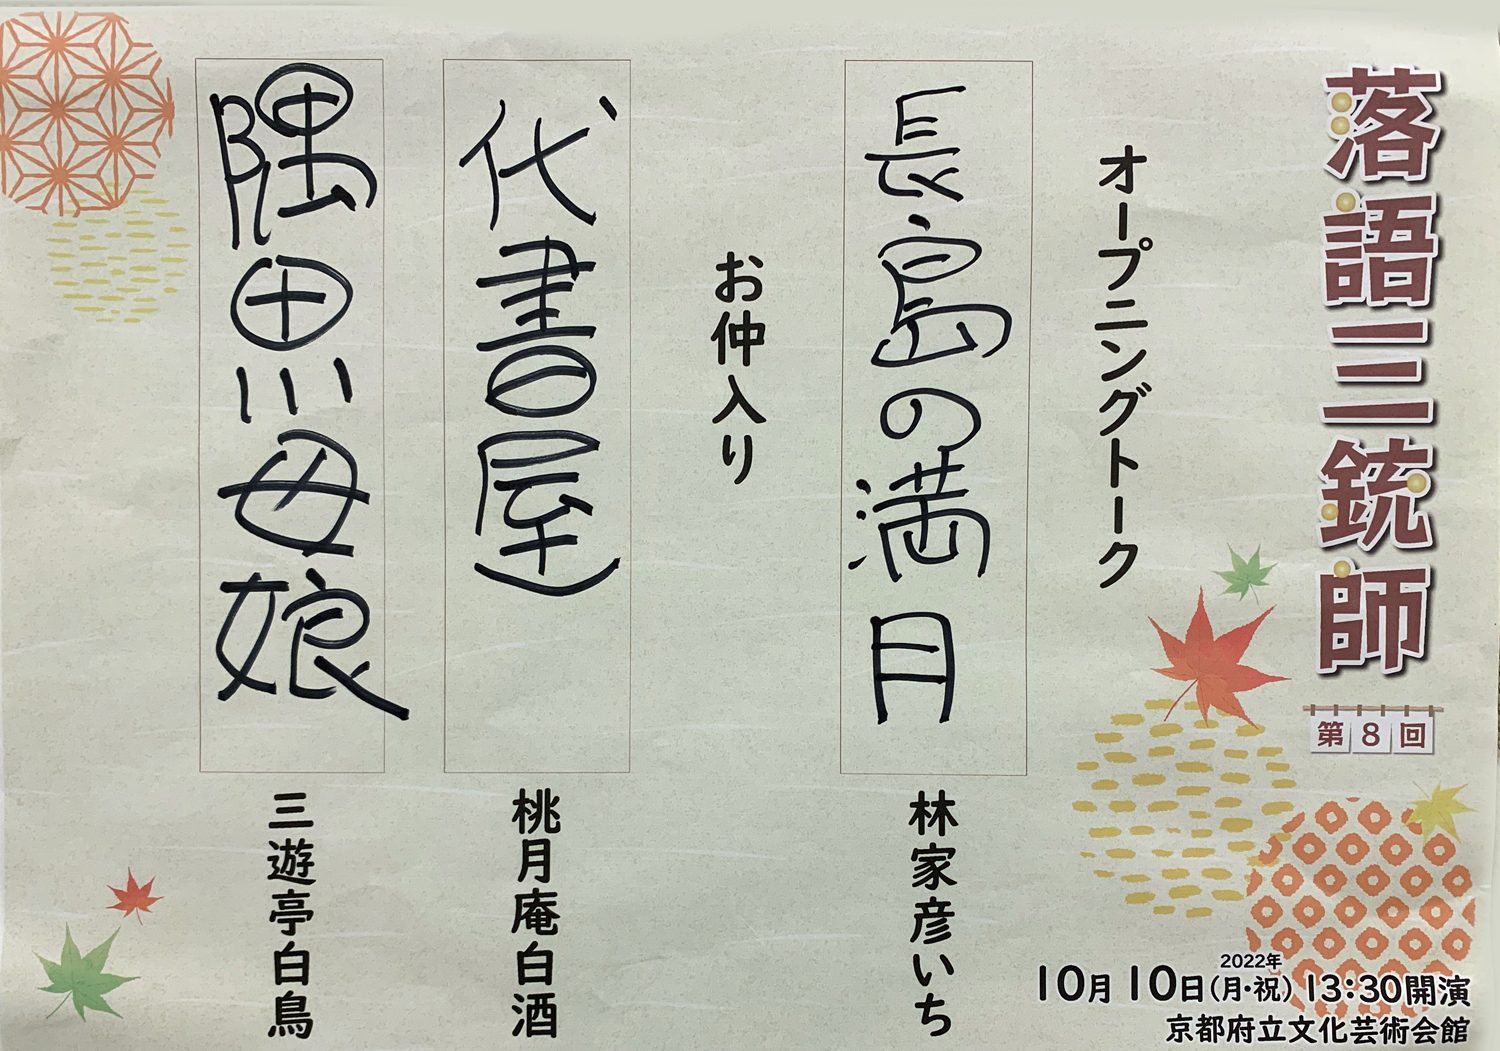 落語三銃師
第8回
オープニングトーク
長島の満月
林家彦いち
お仲入り
代書屋
桃月庵白酒
隅田川母娘
三遊亭白鳥
2022年
10月10日(月・祝) 13:30開演
京都府立文化芸術会館